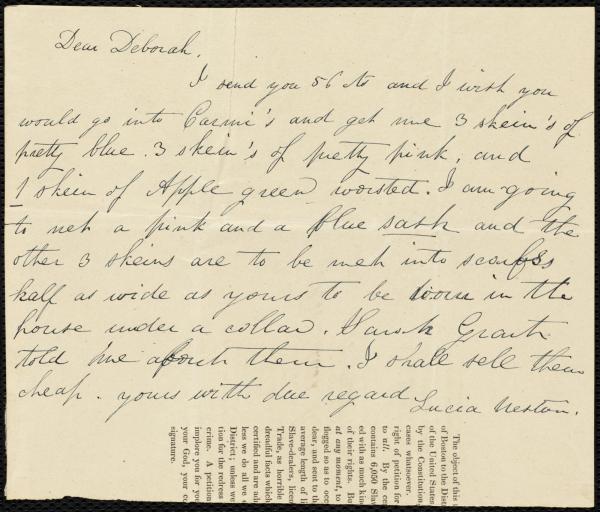 Dear Deborah.
I send you 56 cts and I wish you
would go into Carmi's and get me 3 skein's of
pretty blue. 3 skein's of pretty pink, and
1 skein of Apple green worsted. I am going
to net a pink and a blue sash and the
other 3 skeins are to be net into scarfs
half as wide as yours to be worn in the
house under a collar. Sarah Grant
told me about them. I shall sell them
cheap. yours with due regard Lucia Weston.
The object of this
of Boston to the Dist
of the United States
by the Constitution
cases whatsoever.
right of petition for
to all. By the ce
contains 6,050 Slav
ed with as much kin
of their rights. Bu
at any moment, to
flogged so as to occ
dear, and sent to th
average length of li
Slave-dealers, licen
Trade, as horrible
dreadful facts which
certified and are adm
less we do all we c
District; unless we
tion for the redress
crime. A petition
implore you for you
your God, your co
signature.